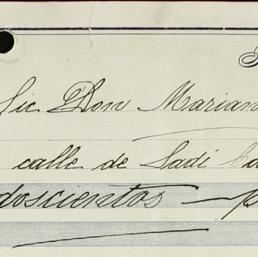 Lic Don Marian
calle de Sadi Ca
doscientos — p